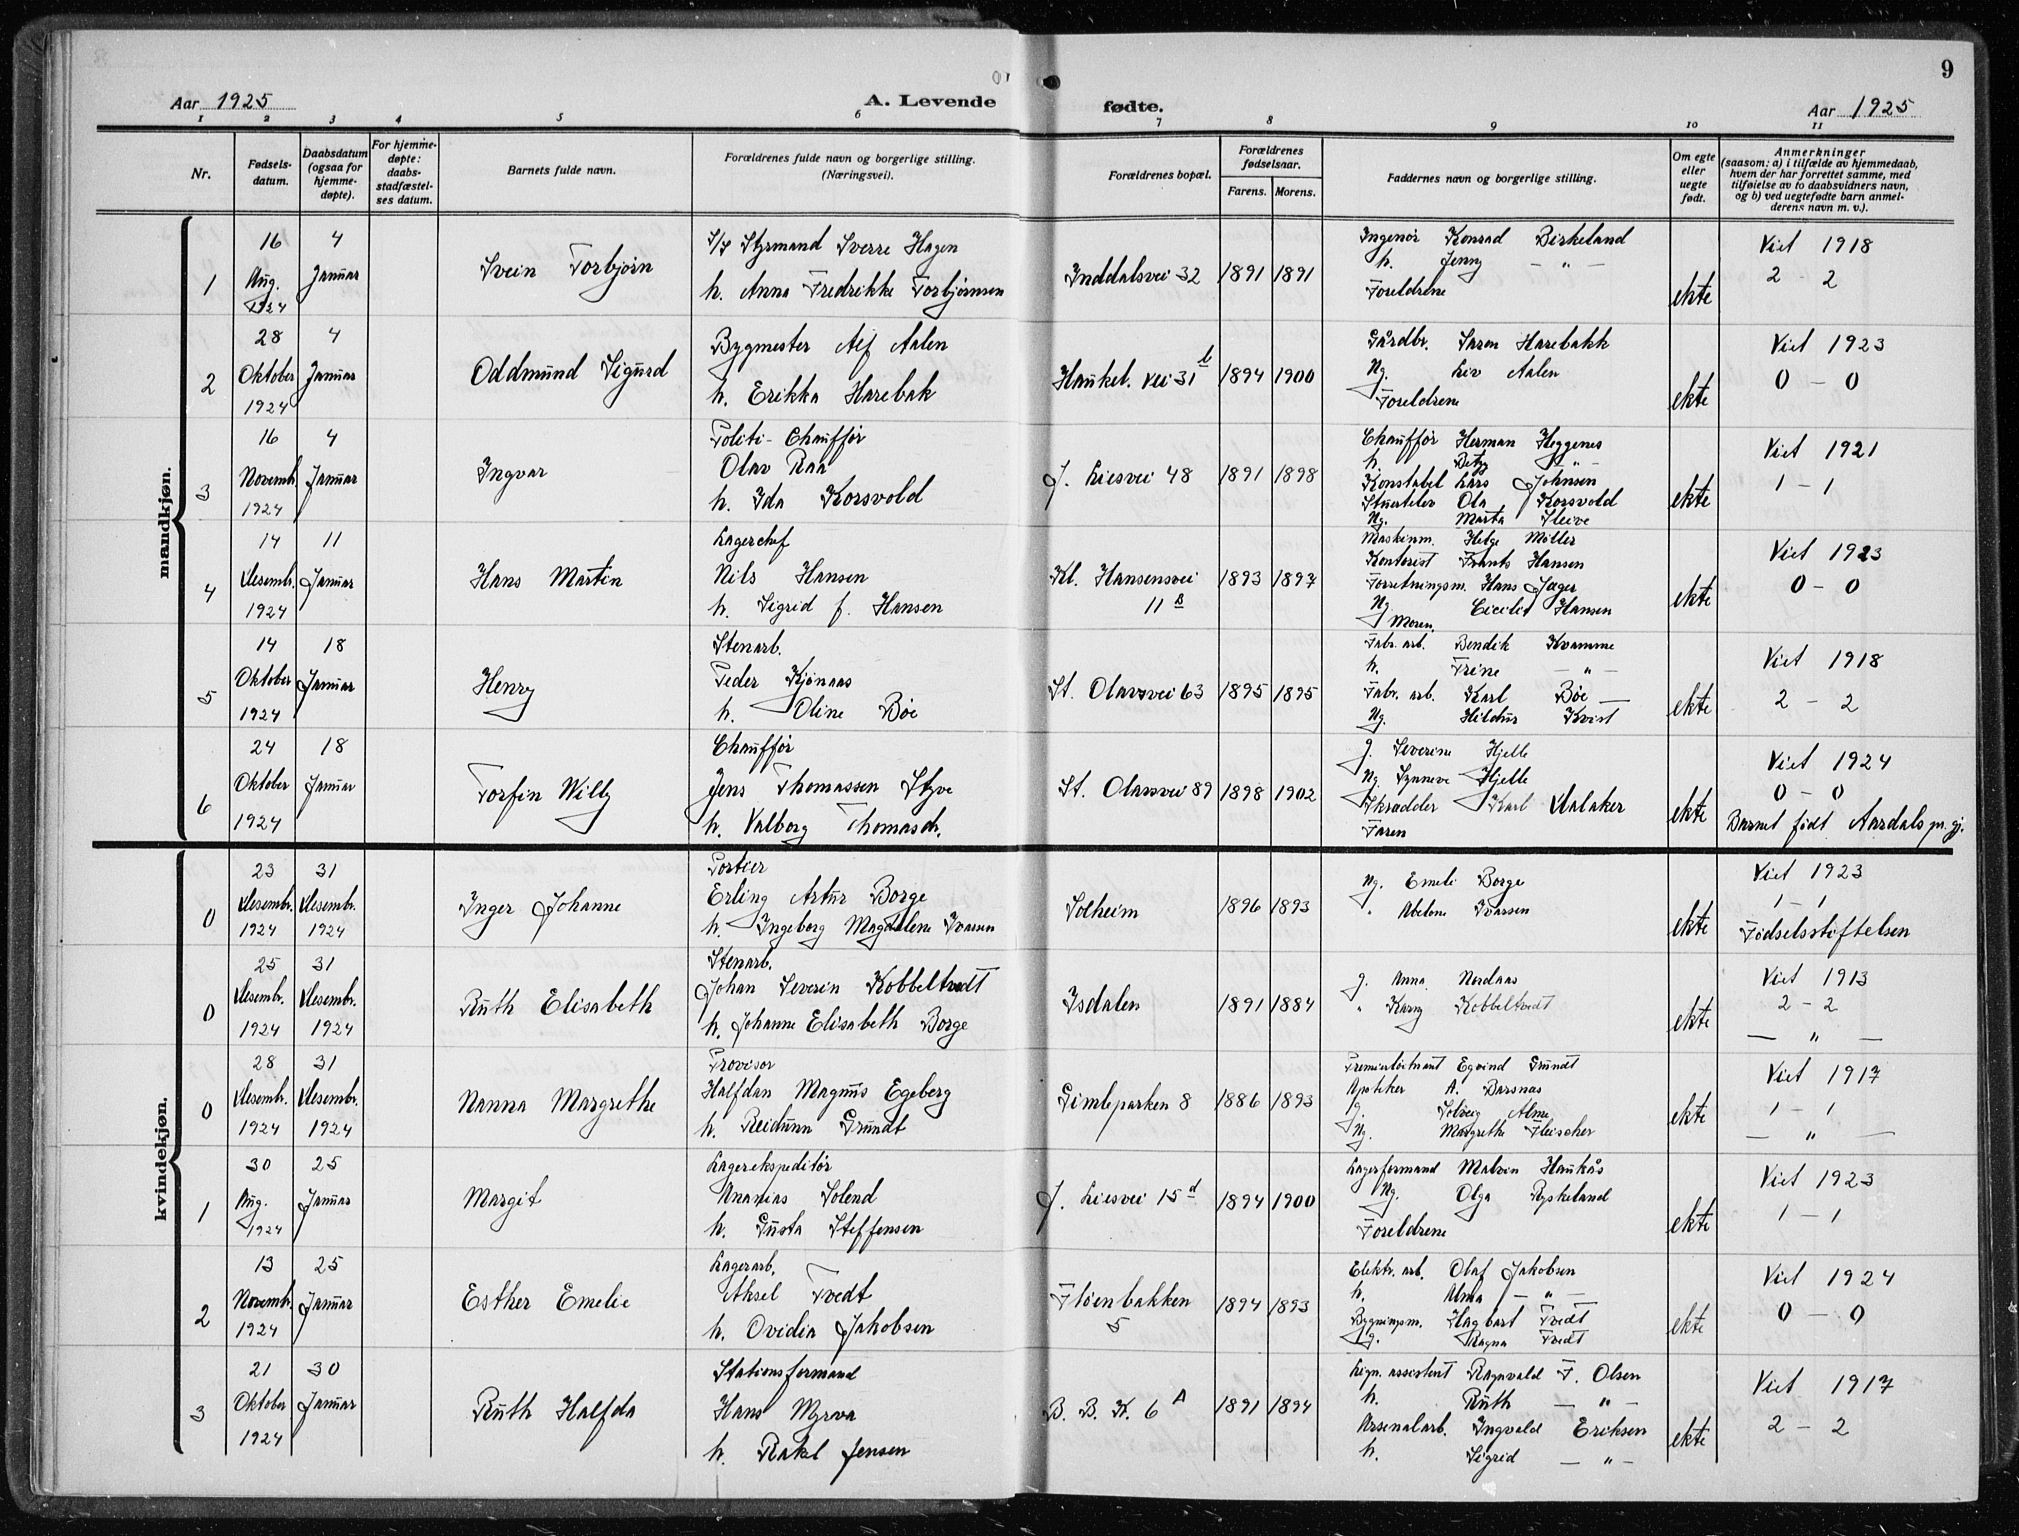 9
Aar 1925
A. Levende
fødte.
Aar 1925
1 2 3 4 5 6 7 8 9 10 11
Nr.
Fødsels-
datum.
Daabsdatum
(ogsaa for
hjemme-
døpte).
For hjemme-
døpte:
daabs-
stadfæstel-
ses datum.
Barnets fulde navn.
Forældrenes fulde navn og borgerlige stilling.
(Næringsvei).
Forældrenes bopæl.
Forældrenes
fødselsaar.
Farens. Morens.
Faddernes navn og borgerlige stilling.
Om egte
eller
uegte
født.
Anmerkninger
(saasom: a) i tilfælde av hjemmedaab,
hvem der har forrettet samme, med
tilføielse av to daabsvidners navn,
og b) ved uegtefødte barn anmel-
derens navn m. v.).
mandkjøn.
1
16
Aug.
1924
4
Januar
Svein Torbjørn
S/S Styrmand Sverre Hagen
h. Anna Fredrikke Torbjørnsen
Inddalsvei 32
1891 1891
Ingenør Konrad Birkeland
h. Jenny — " —
Foreldrene
ekte
Viet 1918
2 - 2
2
28
Oktober
1924
4
Januar
Oddmund Sigurd
Bygmester Alf Aalen
h. Erikka Harebak
Haukel. vei 31 b
1894 1900
Gårdbr. Saren Harebakk
Ng. Liv Aalen
Foreldrene
ekte
Viet 1923
0 - 0
3
16
Novemb.
1924
4
Januar
Ingvar
Politi- Chauffør
Olav Raa
h. Ida Korsvold
J. Liesvei 48
1891 1898
Chauffør Herman Heggenes
h. Betzy — " —
Konstabel Lars Johnsen
Ola Korsvold
Ng. Marta Sleive
ekte
Viet 1921
1 - 1
4
14
Desemb.
1924
11
Januar
Hans Martin
Lagerchef
Nils Hansen
h. Sigrid f. Hansen
Kl. Hansensvei
11 B
1893 1897
Maskinm. Helge Møller
Kontorist Frants Hansen
Forretningsm. Hans Jæger
Ng. Cicilie Hansen
Moren
ekte
Viet 1923
0 - 0
5
14
Oktober
1924
18
Januar
Henry
Stenarb.
Peder Kjönaas
h. Oline Böe
St. Olavsvei 63
1895 1895
Fabr. arb. Bendik Kvamme
h. Trine — " —
Fabr. arb. Karl Böe
Ng. Hildur Kvist
ekte
Viet 1918
2 - 2
6
24
Oktober
1924
18
Januar
Torfin Willy
Chauffør
Jens Thomassen Styve
h. Valborg Thomasdr.
St. Olavsvei 89
1898 1902
g. Severine Hjelle
Ng. Synneve Hjelle
Skradder Karl Aalaker
Faren
ekte
Viet 1924
0 - 0
Barnet født Aardals pr. gj.
kvindekjøn.
0
23
Desemb.
1924
31
Desemb.
1924
Inger Johanne
Portier
Erling Artur Borge
h. Ingeborg Magdalene Ivarsen
Solheim
1896 1893
Ng. Emeli Borge
" Abelone Ivarsen
ekte
Viet 1923
1 - 1
Fødselsstiftelsen
0
25
Desemb.
1924
31
Desemb.
1924
Ruth Elisabeth
Stenarb.
Johan Severin Kobbeltvedt
h. Johanne Elisabeth Borge
Isdalen
1891 1884
g. Anna Nordaas
" Kary Kobbeltvedt
ekte
Viet 1913
2 - 2
— " —
0
28
Desemb.
1924
31
Desemb.
1924
Nanna Margrethe
Provisor
Halfdan Magnus Egeberg
h. Reidunn Grundt
Gimleparken 8
1886 1893
Premierløitnant Egvind Grundt
Apotiker A. Barsnas
g. Solveig Alme
Ng. Margrethe Fleischer
ekte
Viet 1917
1 - 1
— " —
1
30
Aug.
1924
25
Januar
Margit
Lagerekspeditør
Ananias Solend
h. Gusta Steffensen
J. Liesvei 15 d
1894 1900
Lagerformand Malvin Haukås
Ng. Olga Ryskeland
Foreldrene
ekte
Viet 1923
1 - 1
2
13
Novemb.
1924
25
Januar
Esther Emelie
Lagerarb.
Aksel Tvedt
h. Ovidia Jakobsen
Fløenbakken
5
1894 1893
Elektr. arb. Olaf Jakobsen
h. Alma — " —
Bygningsm. Hagbart Tvedt
g. Ragna Tvedt
ekte
Viet 1924
0 - 0
3
21
Oktober
1924
30
Januar
Ruth Halfda
Stationsformand
Hans Myrva
h. Rakel Jensen
B. B. K. 6 A
1891 1894
Lign. assistent Ragnvald F. Olsen
h. Ruth — " —
Arsenalarb. Ingvald Eriksen
h. Sigrid — " —
ekte
Viet 1917
2 - 2